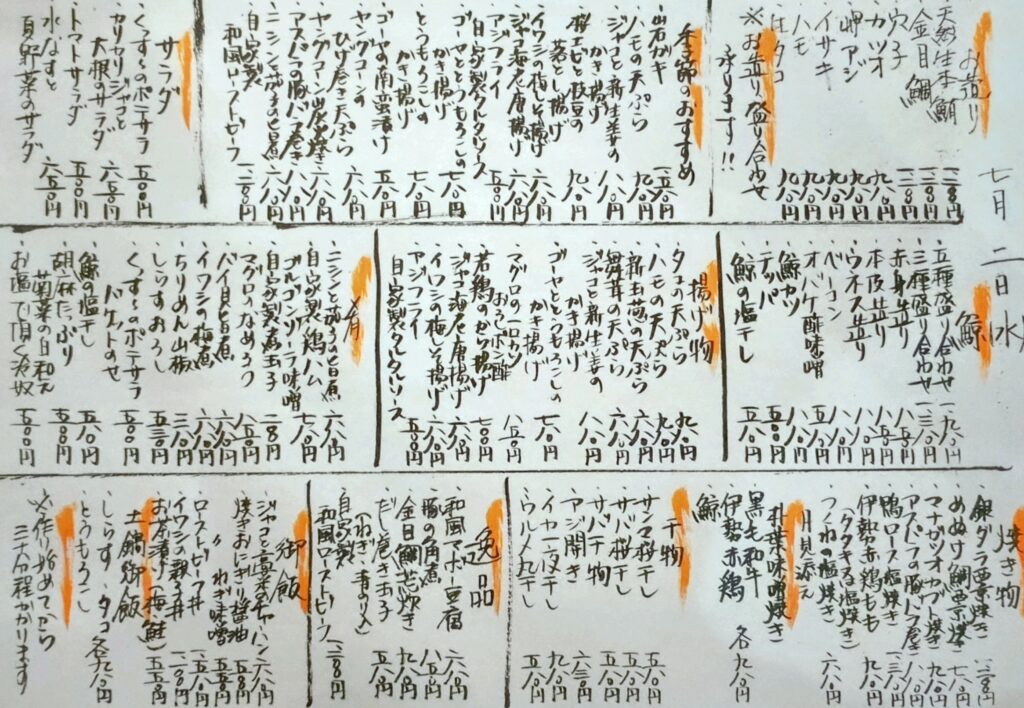 七月二日(水)
お造り
天然生本鮪 一二八〇円
金目鯛 一二八〇円
穴子
カツオ 九八〇円
岬アジ 九八〇円
イサキ 九八〇円
ハモ 九八〇円
生タコ 九八〇円
※お造り盛り合わせ
承ります!!
季節のおすすめ
岩ガキ
ハモの天ぷら 九八〇円
ジャコと新生姜の
かき揚げ 八八〇円
桜エビと枝豆の
落とし揚げ 九八〇円
イワシの梅しそ揚げ 六八〇円
ジャコ海老唐揚げ
アジフライ
自家製タルタルソース 五八〇円
ゴーヤととうもろこしの
かき揚げ 七八〇円
とうもろこしの
かき揚げ 七八〇円
ゴーヤの南蛮漬け 五八〇円
ヤングコーンの
ひげ巻き天ぷら 六八〇円
ヤングコーン炭焼き 六八〇円
アスパラの豚バラ巻き 八八〇円
ニシンと茄子の旨煮 六八〇円
自家製
和風ローストビーフ 一二八〇円
サラダ
くっすーのポテサラ 五八〇円
カリカリジャコと
大根のサラダ 六五〇円
トマトサラダ 五八〇円
水なすと
夏野菜のサラダ 六五〇円
鯨
五種盛り合わせ 一九八〇円
三種盛り合わせ 一三八〇円
赤身造り 八八〇円
本皮造り 八五〇円
ウネス造り 八八〇円
ベーコン 八八〇円
オバケ酢味噌 五八〇円
鯨カツ 八八〇円
テッパ 五八〇円
鯨の塩干し 五八〇円
揚げ物
タコの天ぷら 九八〇円
ハモの天ぷら 九八〇円
新玉葱の天ぷら 六八〇円
舞茸の天ぷら 六八〇円
ジャコと新生姜の
かき揚げ 八八〇円
ゴーヤととうもろこしの
かき揚げ 七八〇円
マグロのほほカツ
おろしポン酢 八五〇円
若鶏のから揚げ 七八〇円
ジャコ海老唐揚げ 六八〇円
イワシの梅しそ揚げ 六八〇円
アジフライ
自家製タルタルソース 五八〇円
肴
ニシンと茄子の旨煮 六八〇円
自家製鶏ハム 七八〇円
ゴルゴンゾーラ味噌
自家製煮玉子 一八〇円
マグロのなめろう 八八〇円
バイ貝旨煮 六八〇円
イワシの梅煮 六八〇円
ちりめん山椒 三八〇円
しらすおろし 五三〇円
くっすーのポテサラ
バケットのせ 五八〇円
鯨の塩干し 五八〇円
胡麻たっぷり
菊菜の白和え 五八〇円
お塩で頂く冷奴 五八〇円
焼き物
銀ダラ西京焼き 一二八〇円
めぬけ鯛西京焼き 七八〇円
マナガツオカブト焼き 九八〇円
アスパラの豚バラ巻き 八八〇円
鴨ロース塩焼き 一二八〇円
伊勢赤鶏もも
(タタキ又は塩焼き) 九八〇円
つくねの塩焼き
月見添え 六八〇円
朴葉味噌焼き
黒毛和牛
伊勢赤鶏
鯨 各九八〇円
干物
サンマ桜干し 五八〇円
サバ桜干し 五八〇円
サバ干物 五八〇円
アジ開き 六三〇円
イカ一夜干し 九八〇円
ウルメ丸干し 五八〇円
逸品
和風マーボー豆腐 六八〇円
豚の角煮 八五〇円
金目鯛あら炊き 九八〇円
だし巻き玉子 六八〇円
(ねぎ・青のり入)
自家製
和風ローストビーフ 一二八〇円
御飯
ジャコと高菜のチャーハン 六八〇円
焼きおにぎり醤油 五八〇円
〃 ねぎ味噌 五八〇円
ローストビーフ丼 一五八〇円
イワシの親子丼 一二八〇円
お茶漬け(梅・鮭) 五五〇円
土鍋御飯
しらす・タコ
とうもろこし 各九八〇円
※作り始めてから
三十分程かかります